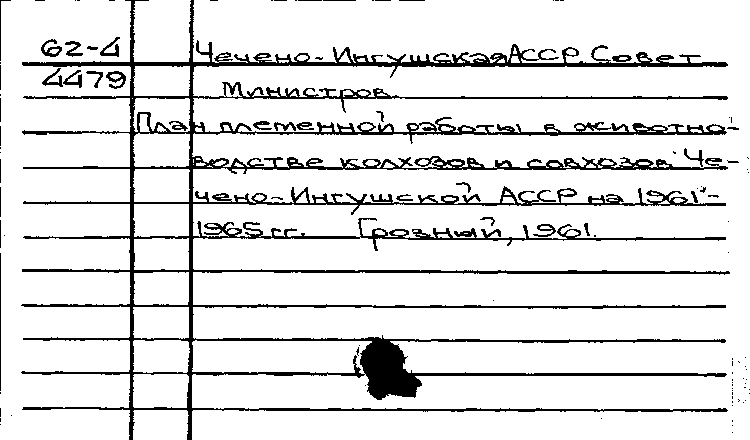 62-4 Чечено-Ингушская АССР. Совет
4479 Министров.
План племенной работы в животно-
водстве колхозов и совхозов Че-
чено-Ингушской АССР на 1961-
1965 гг. Грозный, 1961.